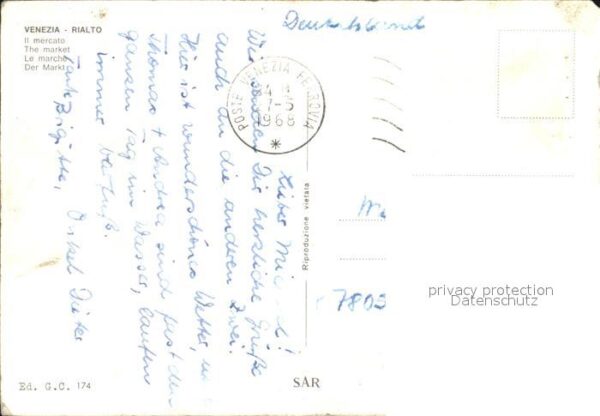 VENEZIA - RIALTO
Il mercato
The market
Le marché
Der Markt
Deutschland
POSTE VENEZIA FERROVIA
Lieber
Wir senden Dir herzliche Grüße
auch an die anderen zwei.
Hier ist wunderschönes Wetter, u
Thomas + Andrea sind fast den
ganzen Tag im Wasser, laufen
immer barfuß.
Tante Brigitte, Onkel Dieter
Riproduzione vietata
7803
privacy protection
Datenschutz
Ed. G. C. 174
SAR